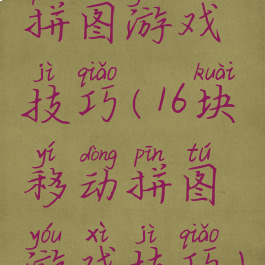 拼图游戏
jì qiǎo kuài
技巧(16块
yí dòng pīn tú
移动拼图
yóu xì jì qiǎo
游戏技巧)